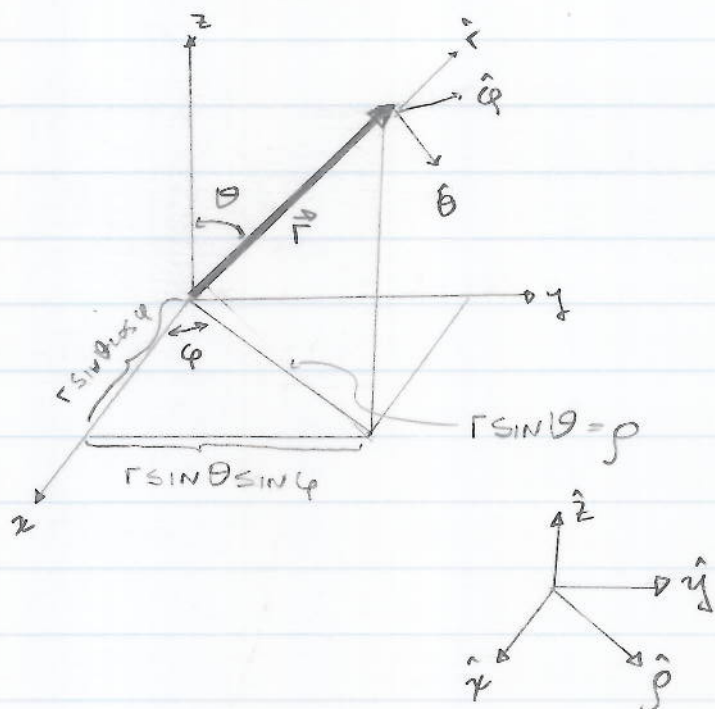 z
r̂
φ̂
θ̂
θ
r⃗
y
r sinθ cosφ
φ
r sinθ = ρ
r sinθ sinφ
x
ẑ
ŷ
x̂
ρ̂